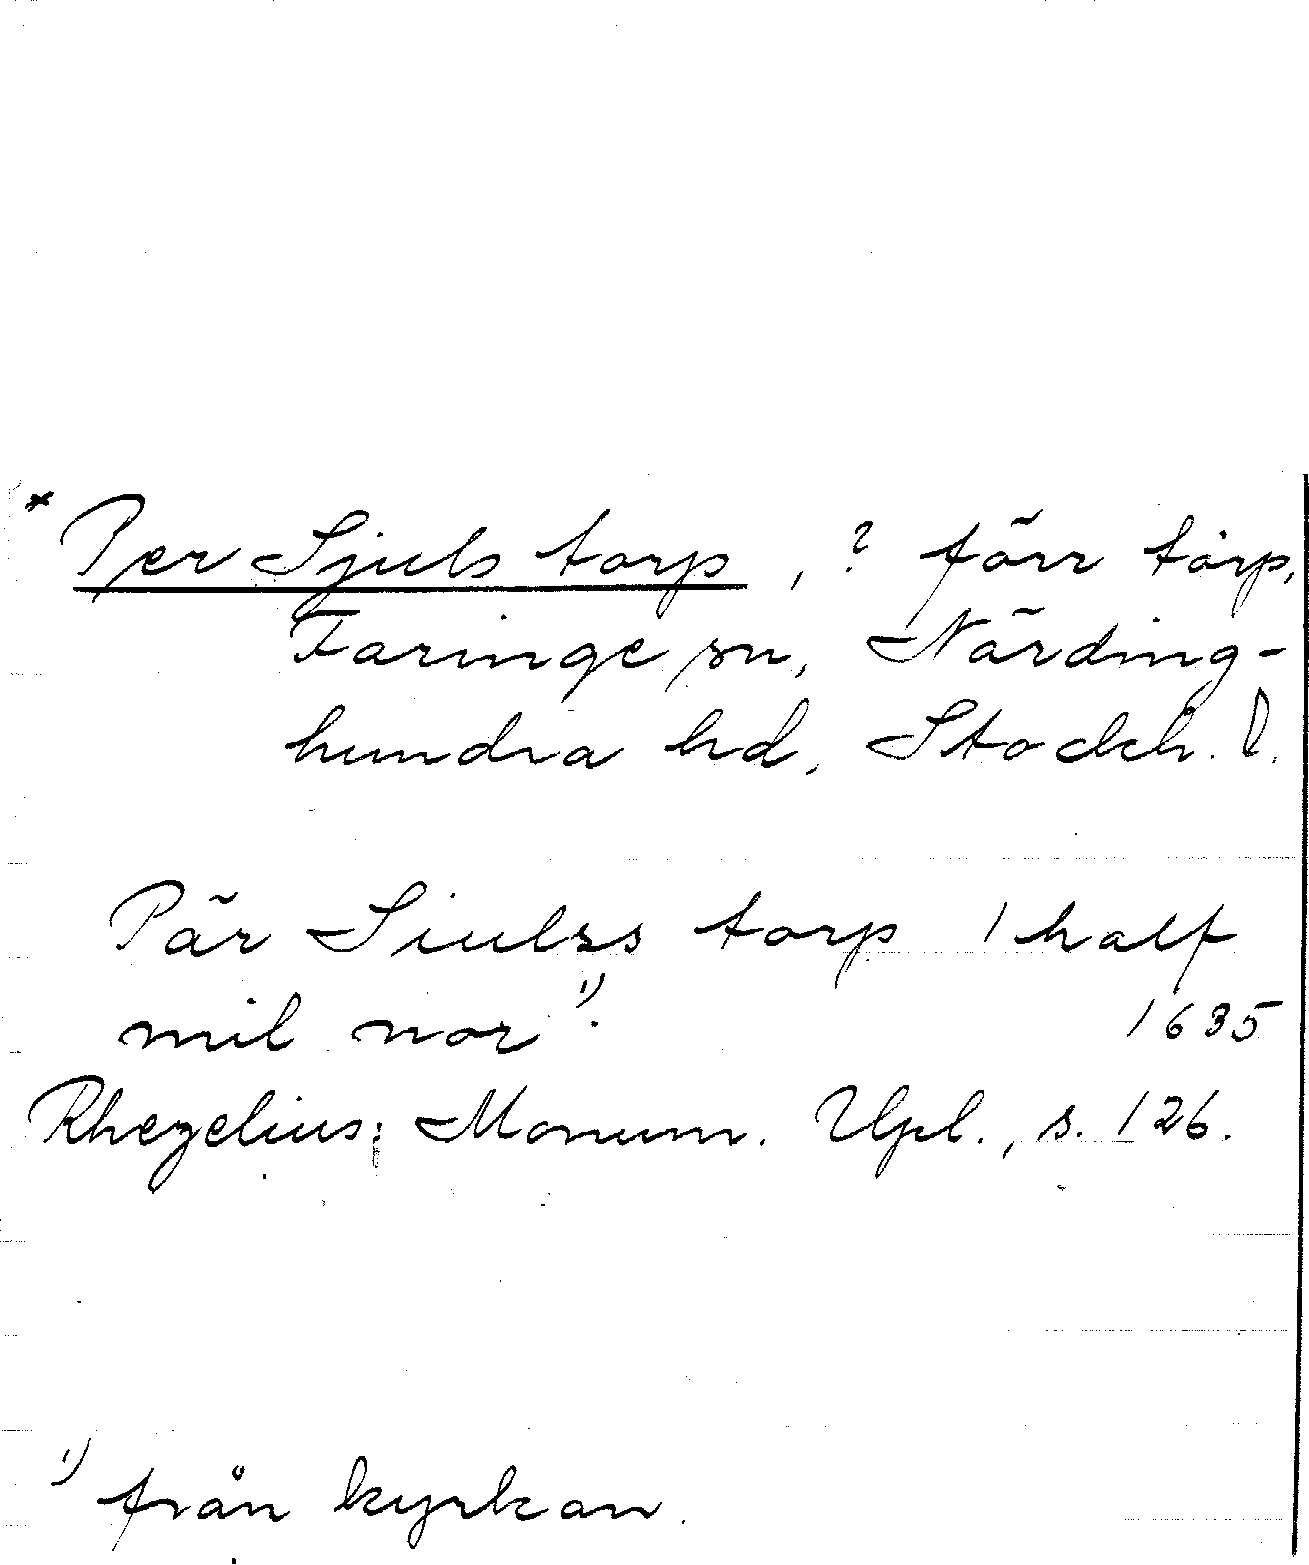 * Per Sjuls torp, ? förr torp,
Faringe sn, Närding-
hundra hd, Stockh. l.
Pär Siulss torp 1 half
mil nor 1). 1635
Rhezelius: Monum. Upl., s. 126.
1) från kyrkan.